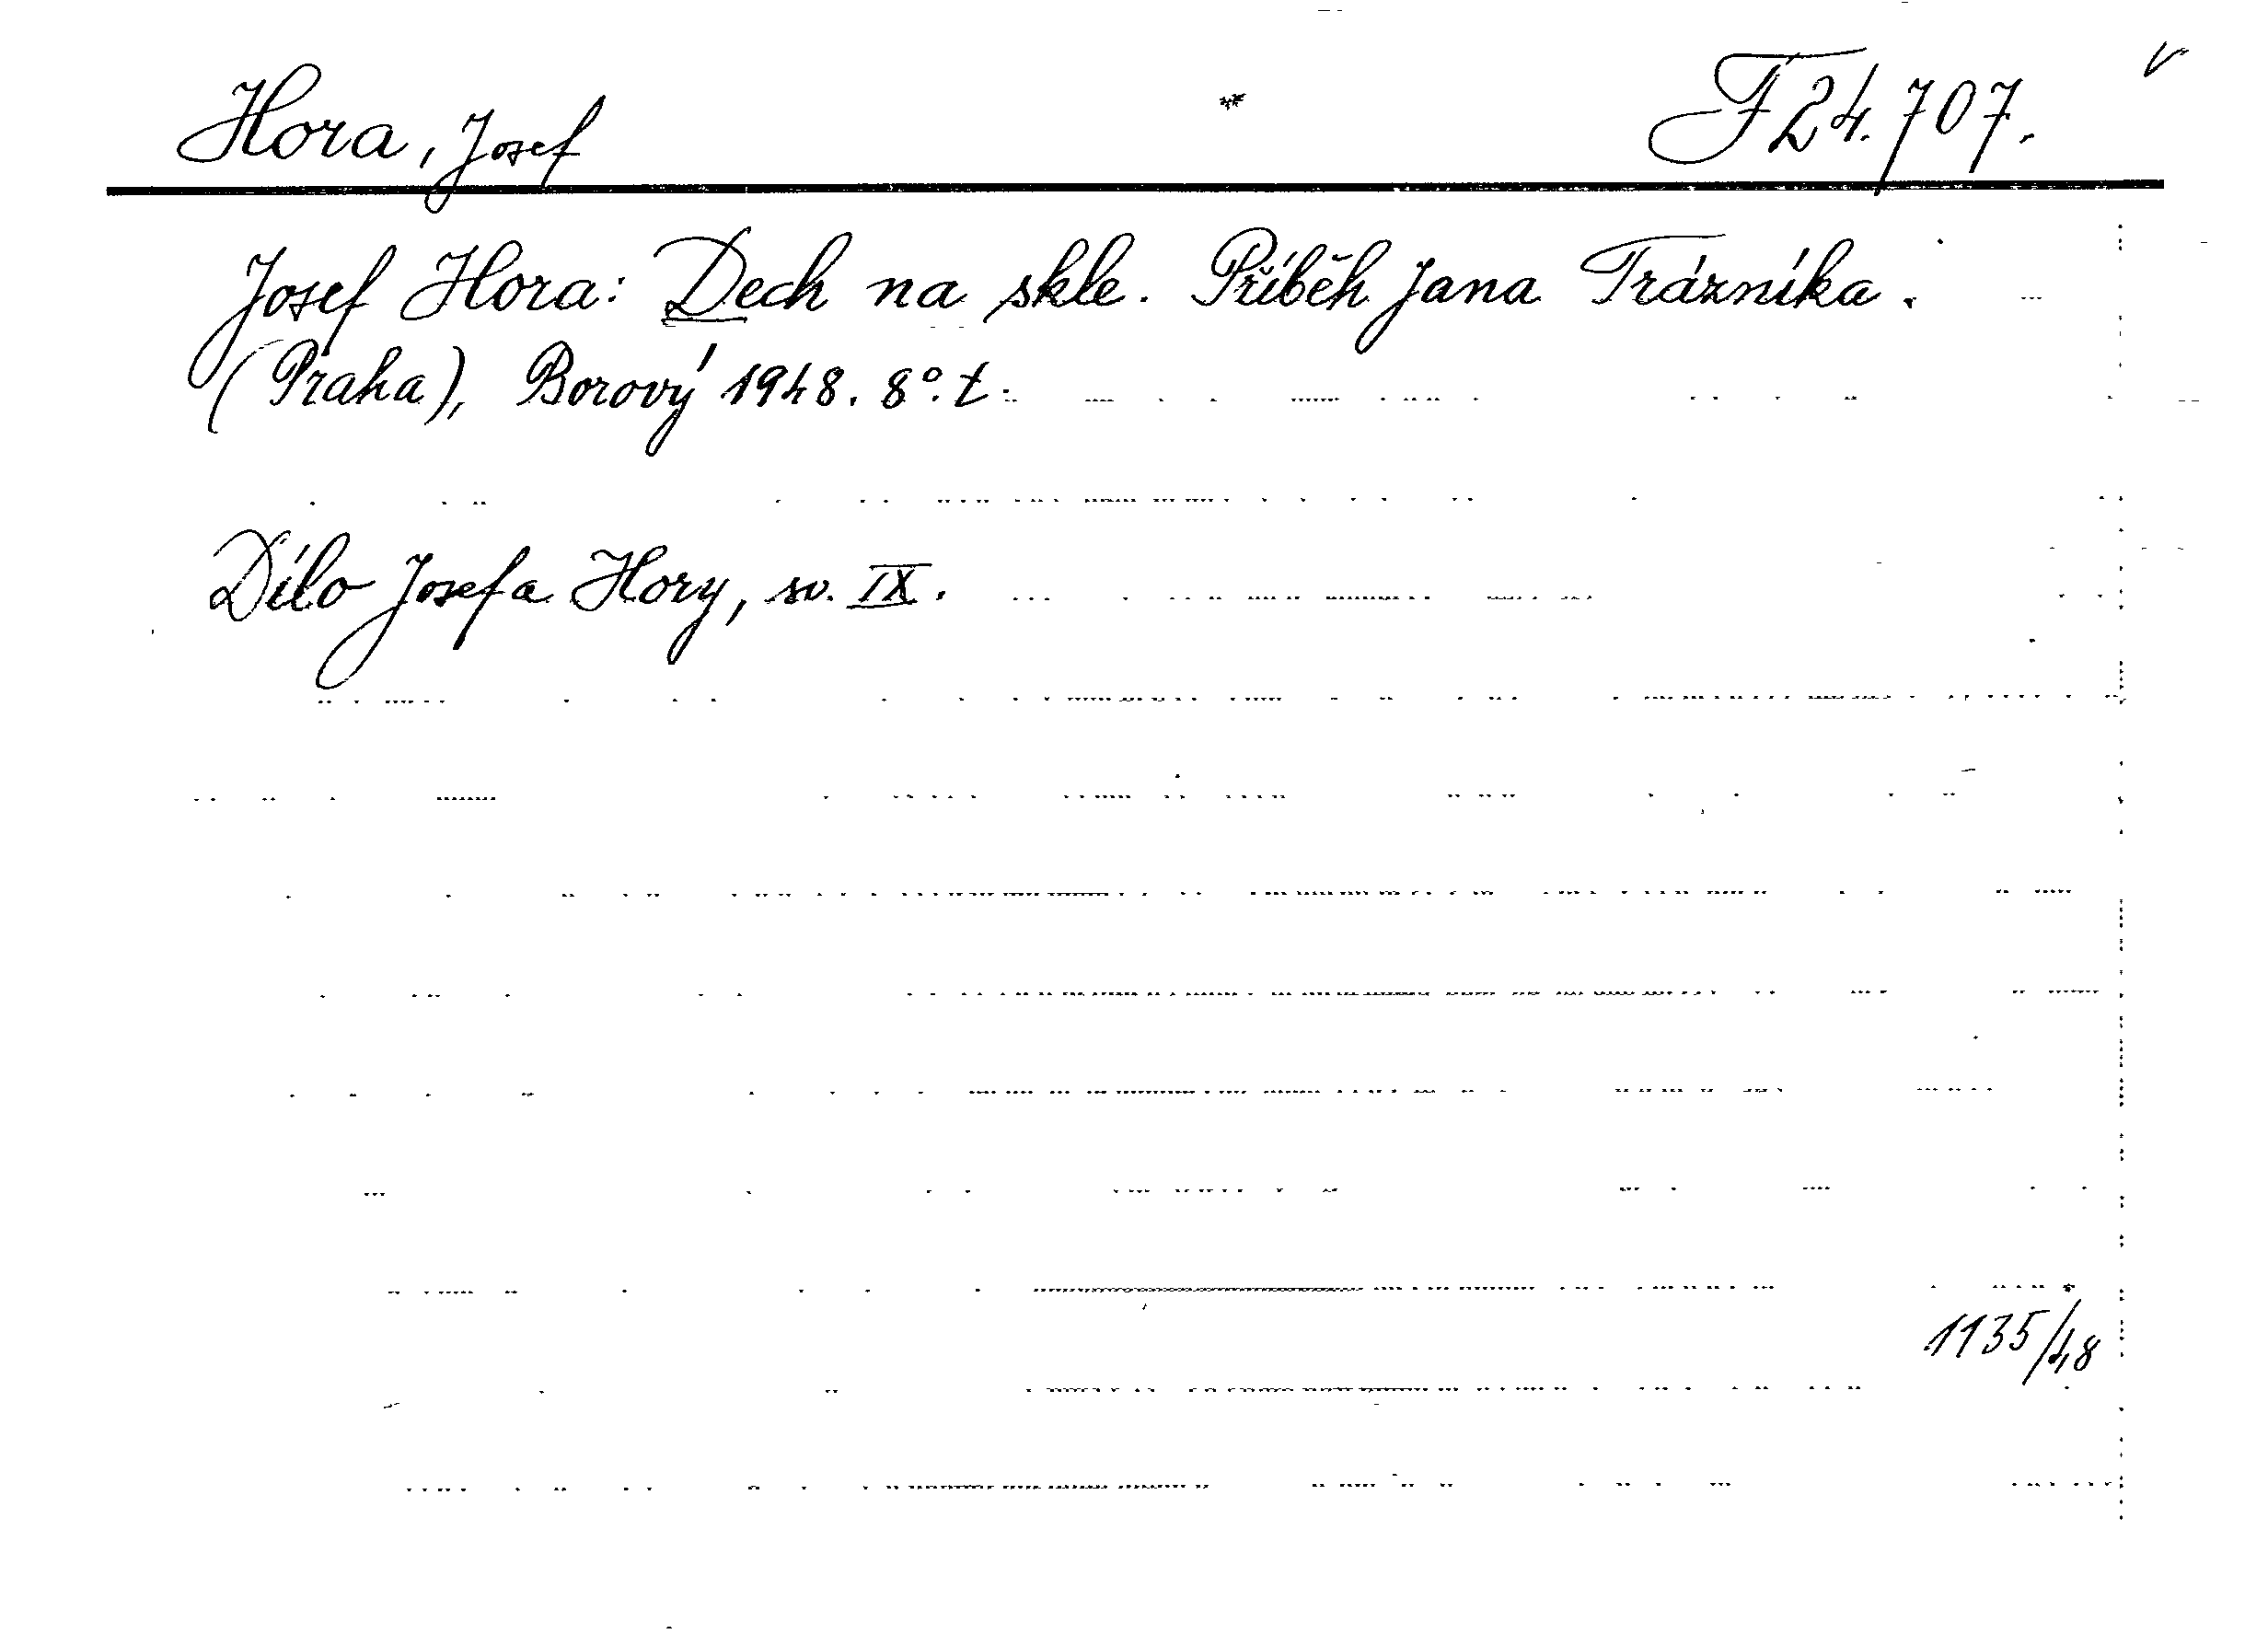 Hora, Josef
F 24.707.
Josef Hora: Dech na skle. Příběh Jana Trázníka.
(Praha), Borový 1948. 8°. t.
Dílo Josefa Hory, sv. IX.
1135/48